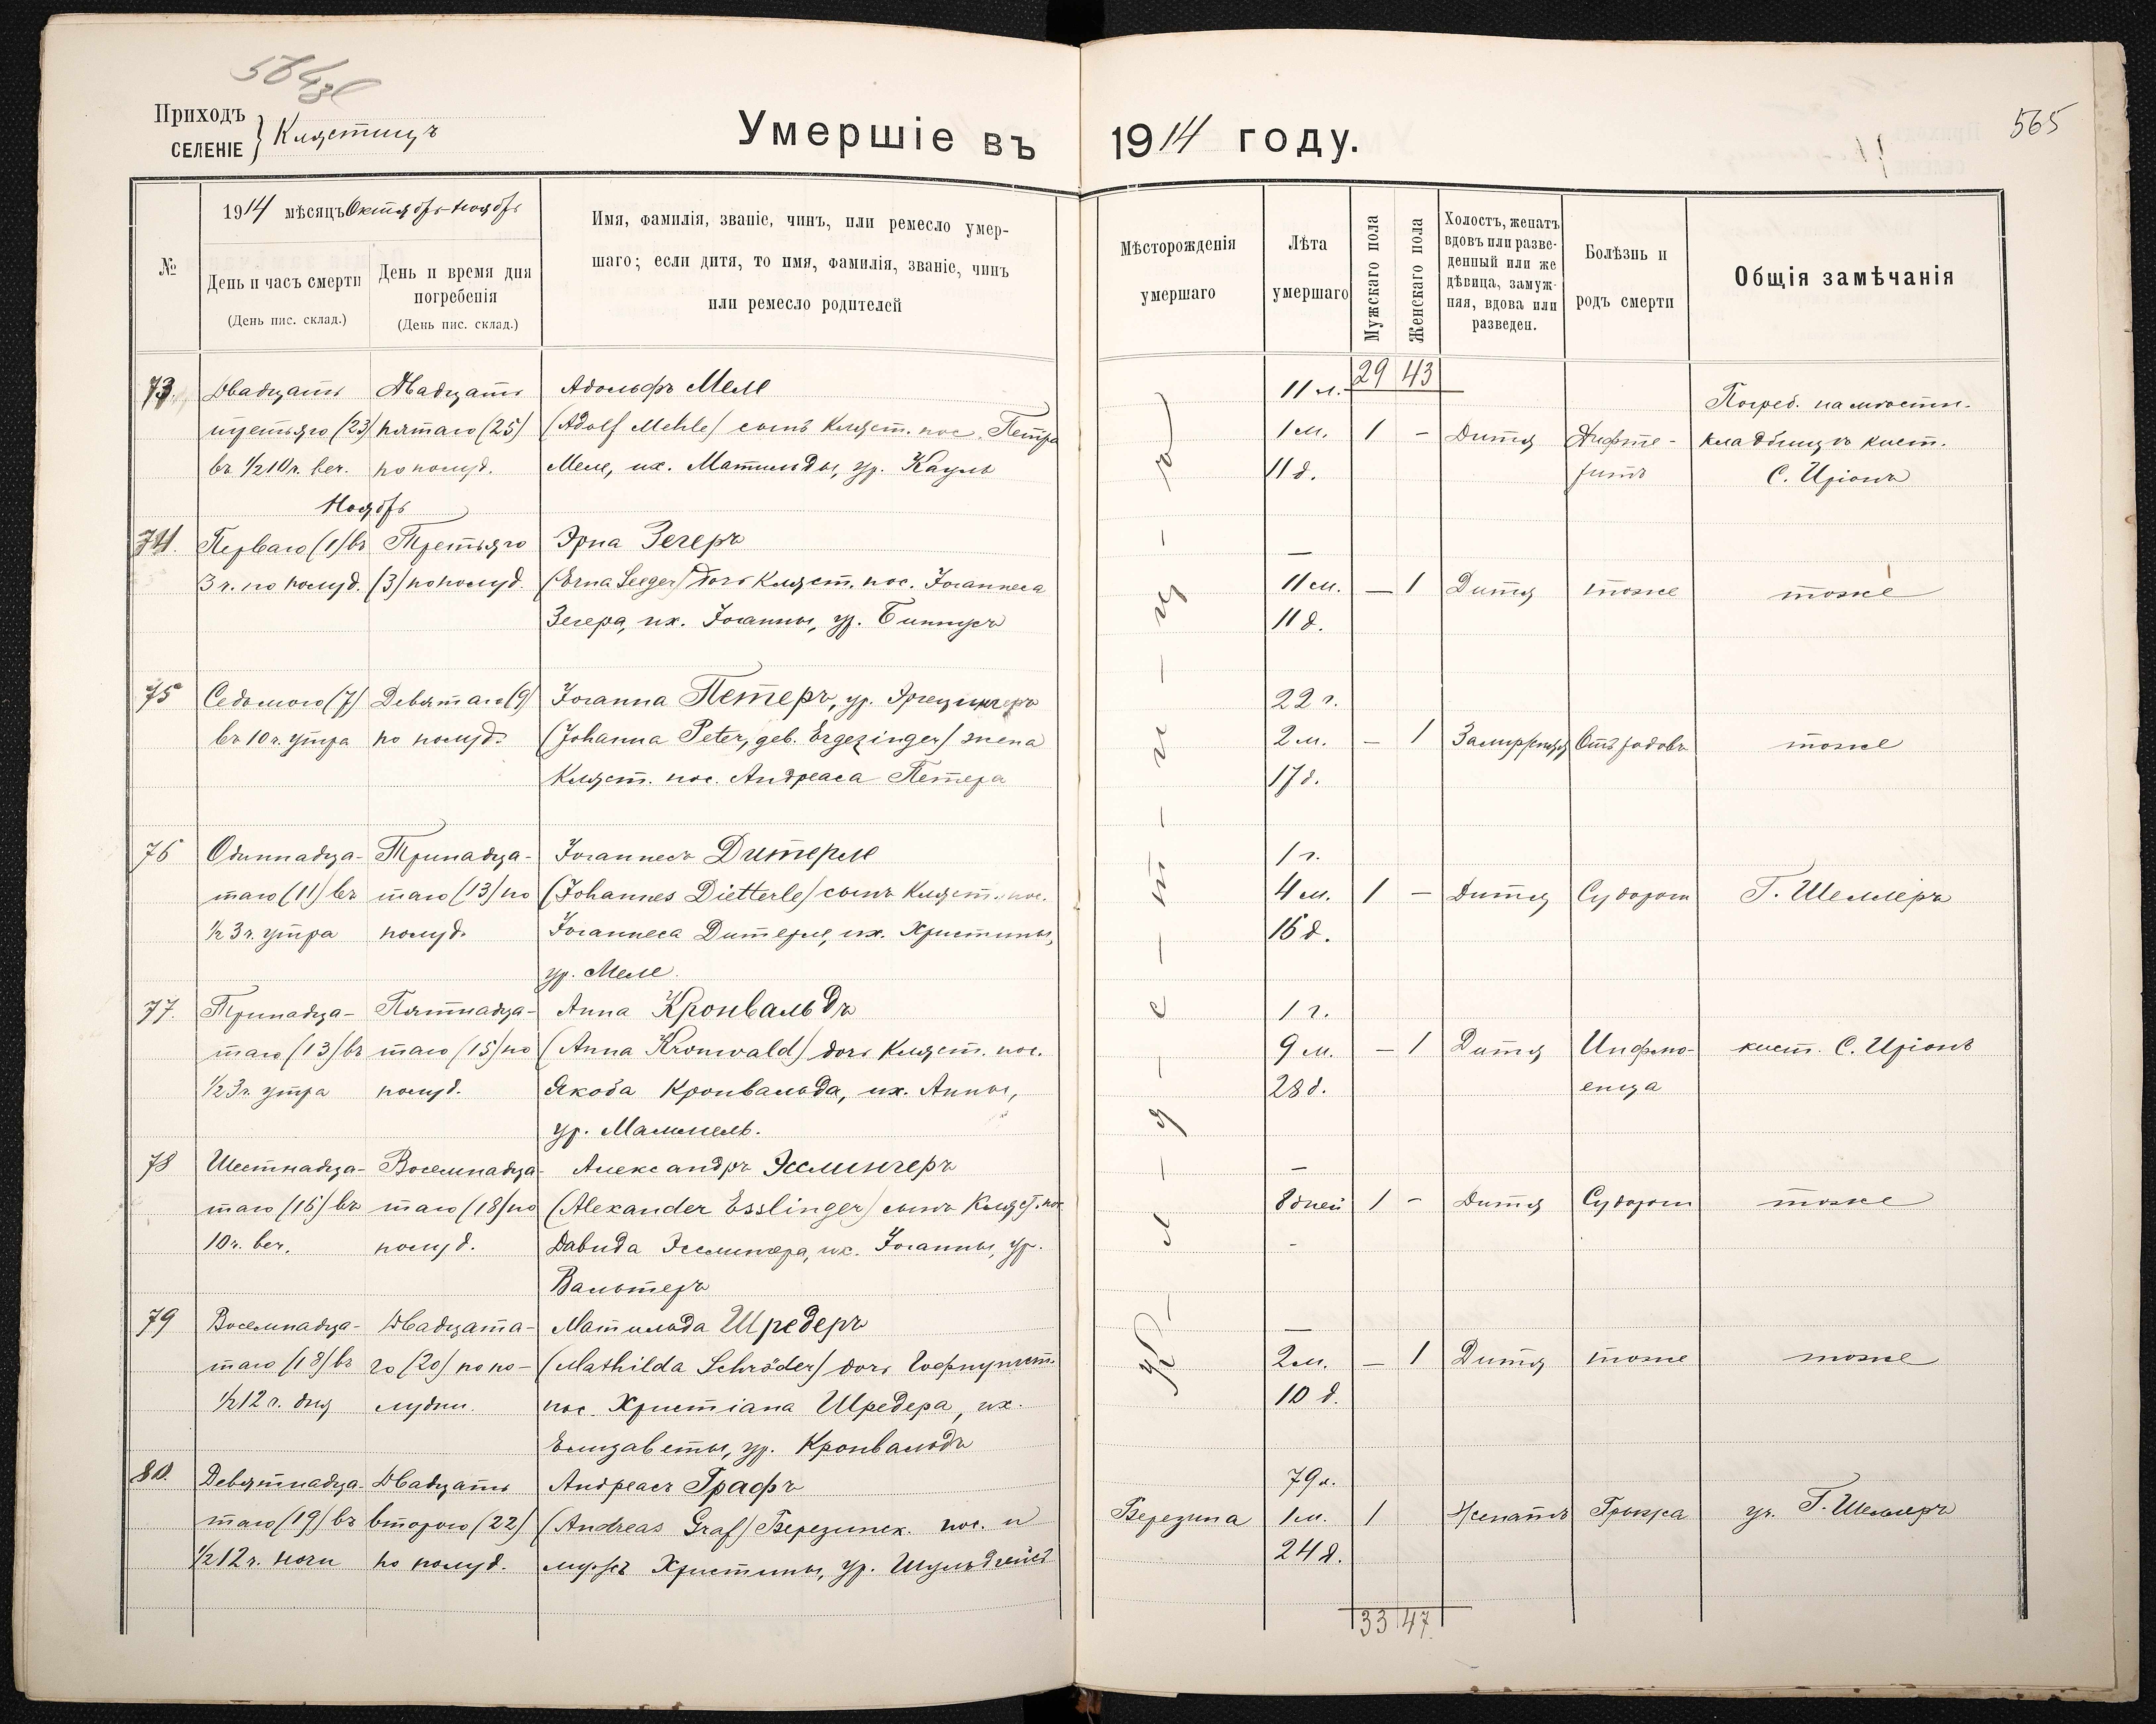 Приходъ
СЕЛЕНІЕ
Клястицъ
Умершіе въ 1914 году.
565
№
1914 мѣсяцъ Октябрь-Ноябрь
День и часъ смерти
(День пис. склад.)
День и время дня
погребенія
(День пис. склад.)
Имя, фамилія, званіе, чинъ, или ремесло умер-
шаго; если дитя, то имя, фамилія, званіе, чинъ
или ремесло родителей
Мѣсторожденія
умершаго
Лѣта
умершаго
Мужскаго пола
Женскаго пола
Холостъ, женатъ
вдовъ или разве-
денный или же
дѣвица, замуж-
няя, вдова или
разведен.
Болѣзнь и
родъ смерти
Общія замѣчанія
29 43
К-л-я-с-т-и-ц-ъ
73. Двадцать Двадцать Адольфъ Меле 11 м. Погред. на мѣстн.
третьяго (23) пятаго (25) (Adolf Mehle) сынъ Кляст. пос. Петра 1 м. 1 - Дитя Дифте- кладбищѣ кист.
въ ½10 ч. веч. по полуд. Меле, их. Матильды, ур. Кауль 11 д. ритъ С. Иріонъ
Ноябрь
74. Перваго (1) въ Третьяго Эрна Зегеръ —
3 ч. по полуд. (3) по полуд. (Erna Seeger) дочь Кляст. пос. Іоганнеса 11 м. — 1 Дитя тоже тоже
Зегера, их. Іоганны, ур. Биннусъ 11 д.
75 Седьмого (7) Девятаго (9) Іоганна Петеръ, ур. Эргецингеръ 22 г.
въ 10 ч. утра по полуд. (Johanna Peter, geb. Ergezinger) жена 2 м. — 1 Замужняя Отъ родовъ тоже
Кляст. пос. Андреаса Петера 17 д.
76 Одиннадца- Тринадца- Іоганнесъ Дитерле 1 г.
таго (11) въ таго (13) по (Johannes Dietterle) сынъ Кляст. пос. 4 м. 1 — Дитя Судорогн Г. Шеллеръ
½ 3 ч. утра полуд. Іоганнеса Дитерле, их. Христины, 16 д.
ур. Меле.
77. Тринадца- Пятнадца- Анна Кронвальдъ 1 г.
таго (13) въ таго (15) по (Anna Kronwald) дочь Кляст. пос. 9 м. — 1 Дитя Инфлю- кист. С. Иріонъ
½ 3 ч. утра полуд. Якоба Кронвальда, их. Анны, 28 д. енца
ур. Маммель.
78 Шестнадца- Восемнадца- Александръ Эсслингеръ —
таго (16) въ таго (18) по (Alexander Esslinger) сынъ Кляст. пос. 8 дней 1 - Дитя Судорогн тоже
10 ч. веч. полуд. Давида Эсслингера, их. Іоганны, ур. -
Вальтеръ
79 Восемнадца- Двадцата- Матильда Шредеръ —
таго (18) въ го (20) по по- (Mathilda Schröder) дочь 2 м. — 1 Дитя тоже тоже
½ 12 ч. дня лудни. пос. Христіана Шредера, их. 10 д.
Елизаветы, ур. Кронвальдъ
80. Девятнадца- Двадцать Андреасъ Графъ 79 л.
таго (19) въ второго (22) (Andreas Graf) Березинск. пос. и Березина 1 м. 1 Женатъ Грыжа уч. Г. Шеллеръ
½ 12 ч. ночи по полуд. мужъ Христины, ур. 24 д.
33 47